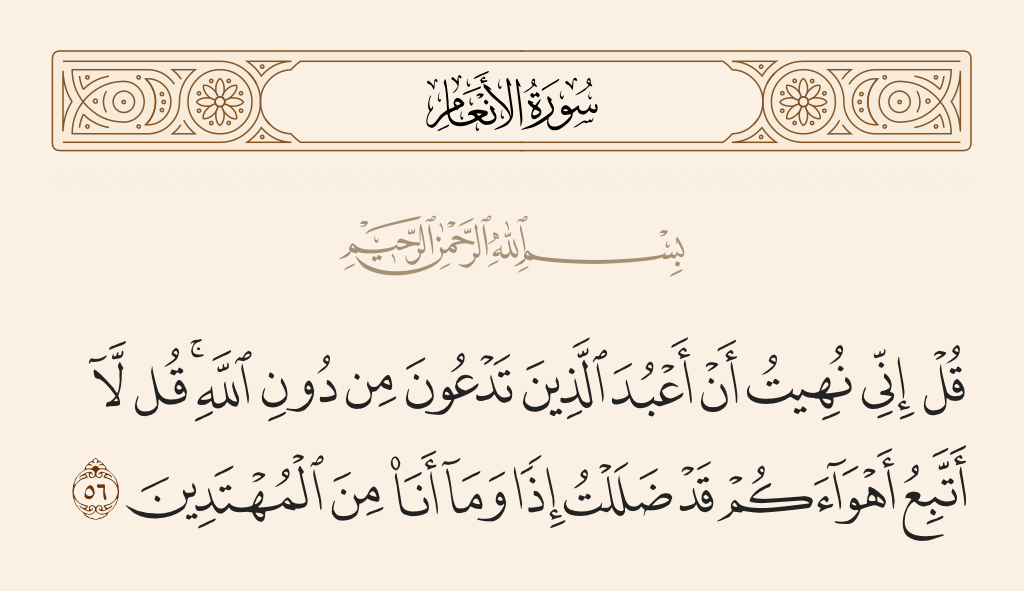 سُورَةُ الأَنْعَامِ
بِسْمِ ٱللَّهِ ٱلرَّحْمَٰنِ ٱلرَّحِيمِ
قُلْ إِنِّي نُهِيتُ أَنْ أَعْبُدَ ٱلَّذِينَ تَدْعُونَ مِن دُونِ ٱللَّهِ ۚ قُل لَّآ
أَتَّبِعُ أَهْوَآءَكُمْ قَدْ ضَلَلْتُ إِذًا وَمَآ أَنَا۠ مِنَ ٱلْمُهْتَدِينَ ٥٦